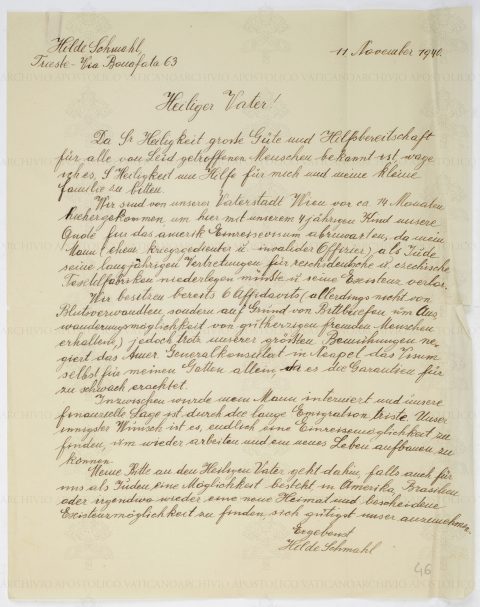 Hilde Schmahl
Trieste - Via Bonafata 63
11 November 1940.
Heiliger Vater!
Da Sr Heiligkeit grosse Güte und Hilfsbereitschaft
für alle von Leid getroffenen Menschen bekannt ist, wage
ich es, S Heiligkeit um Hilfe für mich und meine kleine
Familie zu bitten.
Wir sind von unserer Vaterstadt Wien vor ca 14 Monaten
hiehergekommen, um hier mit unserem 4 jährigen Kind unsere
Quote für das amerik Einreisevisum abzuwarten, da mein
Mann (ehem kriegsgedienter u invalider Offizier) als Jude
seine langjährigen Vertretungen für reichsdeutsche u czechische
Textilfabriken niederlegen müsste u seine Existenz verlor.
Wir besitzen bereits 6 Affidavits (allerdings nicht von
Blutsverwandten, sondern auf Grund von Bittbriefen um Aus
wanderungsmöglichkeit von gutherzigen fremden Menschen
erhalten), jedoch trotz unserer grössten Bemühungen ne-
giert das Amer Generalkonsulat in Neapel das Visum
selbst für meinen Gatten allein, da es die Garantien für
zu schwach erachtet.
Inzwischen wurde mein Mann interniert und unsere
finanzielle Lage ist durch die lange Emigration triste. Unser
innigster Wunsch ist es, endlich eine Einreisemöglichkeit zu
finden, um wieder arbeiten und ein neues Leben aufbauen zu
können.
Meine Bitte an den Heiligen Vater geht dahin, falls auch für
uns als Juden eine Möglichkeit besteht in Amerika, Brasilien
oder irgendwo wieder eine neue Heimat und bescheidene
Existenzmöglichkeit zu finden, sich gütigst unser anzunehmen.
Ergebenst
Hilde Schmahl
46
ARCHIVIO APOSTOLICO VATICANO